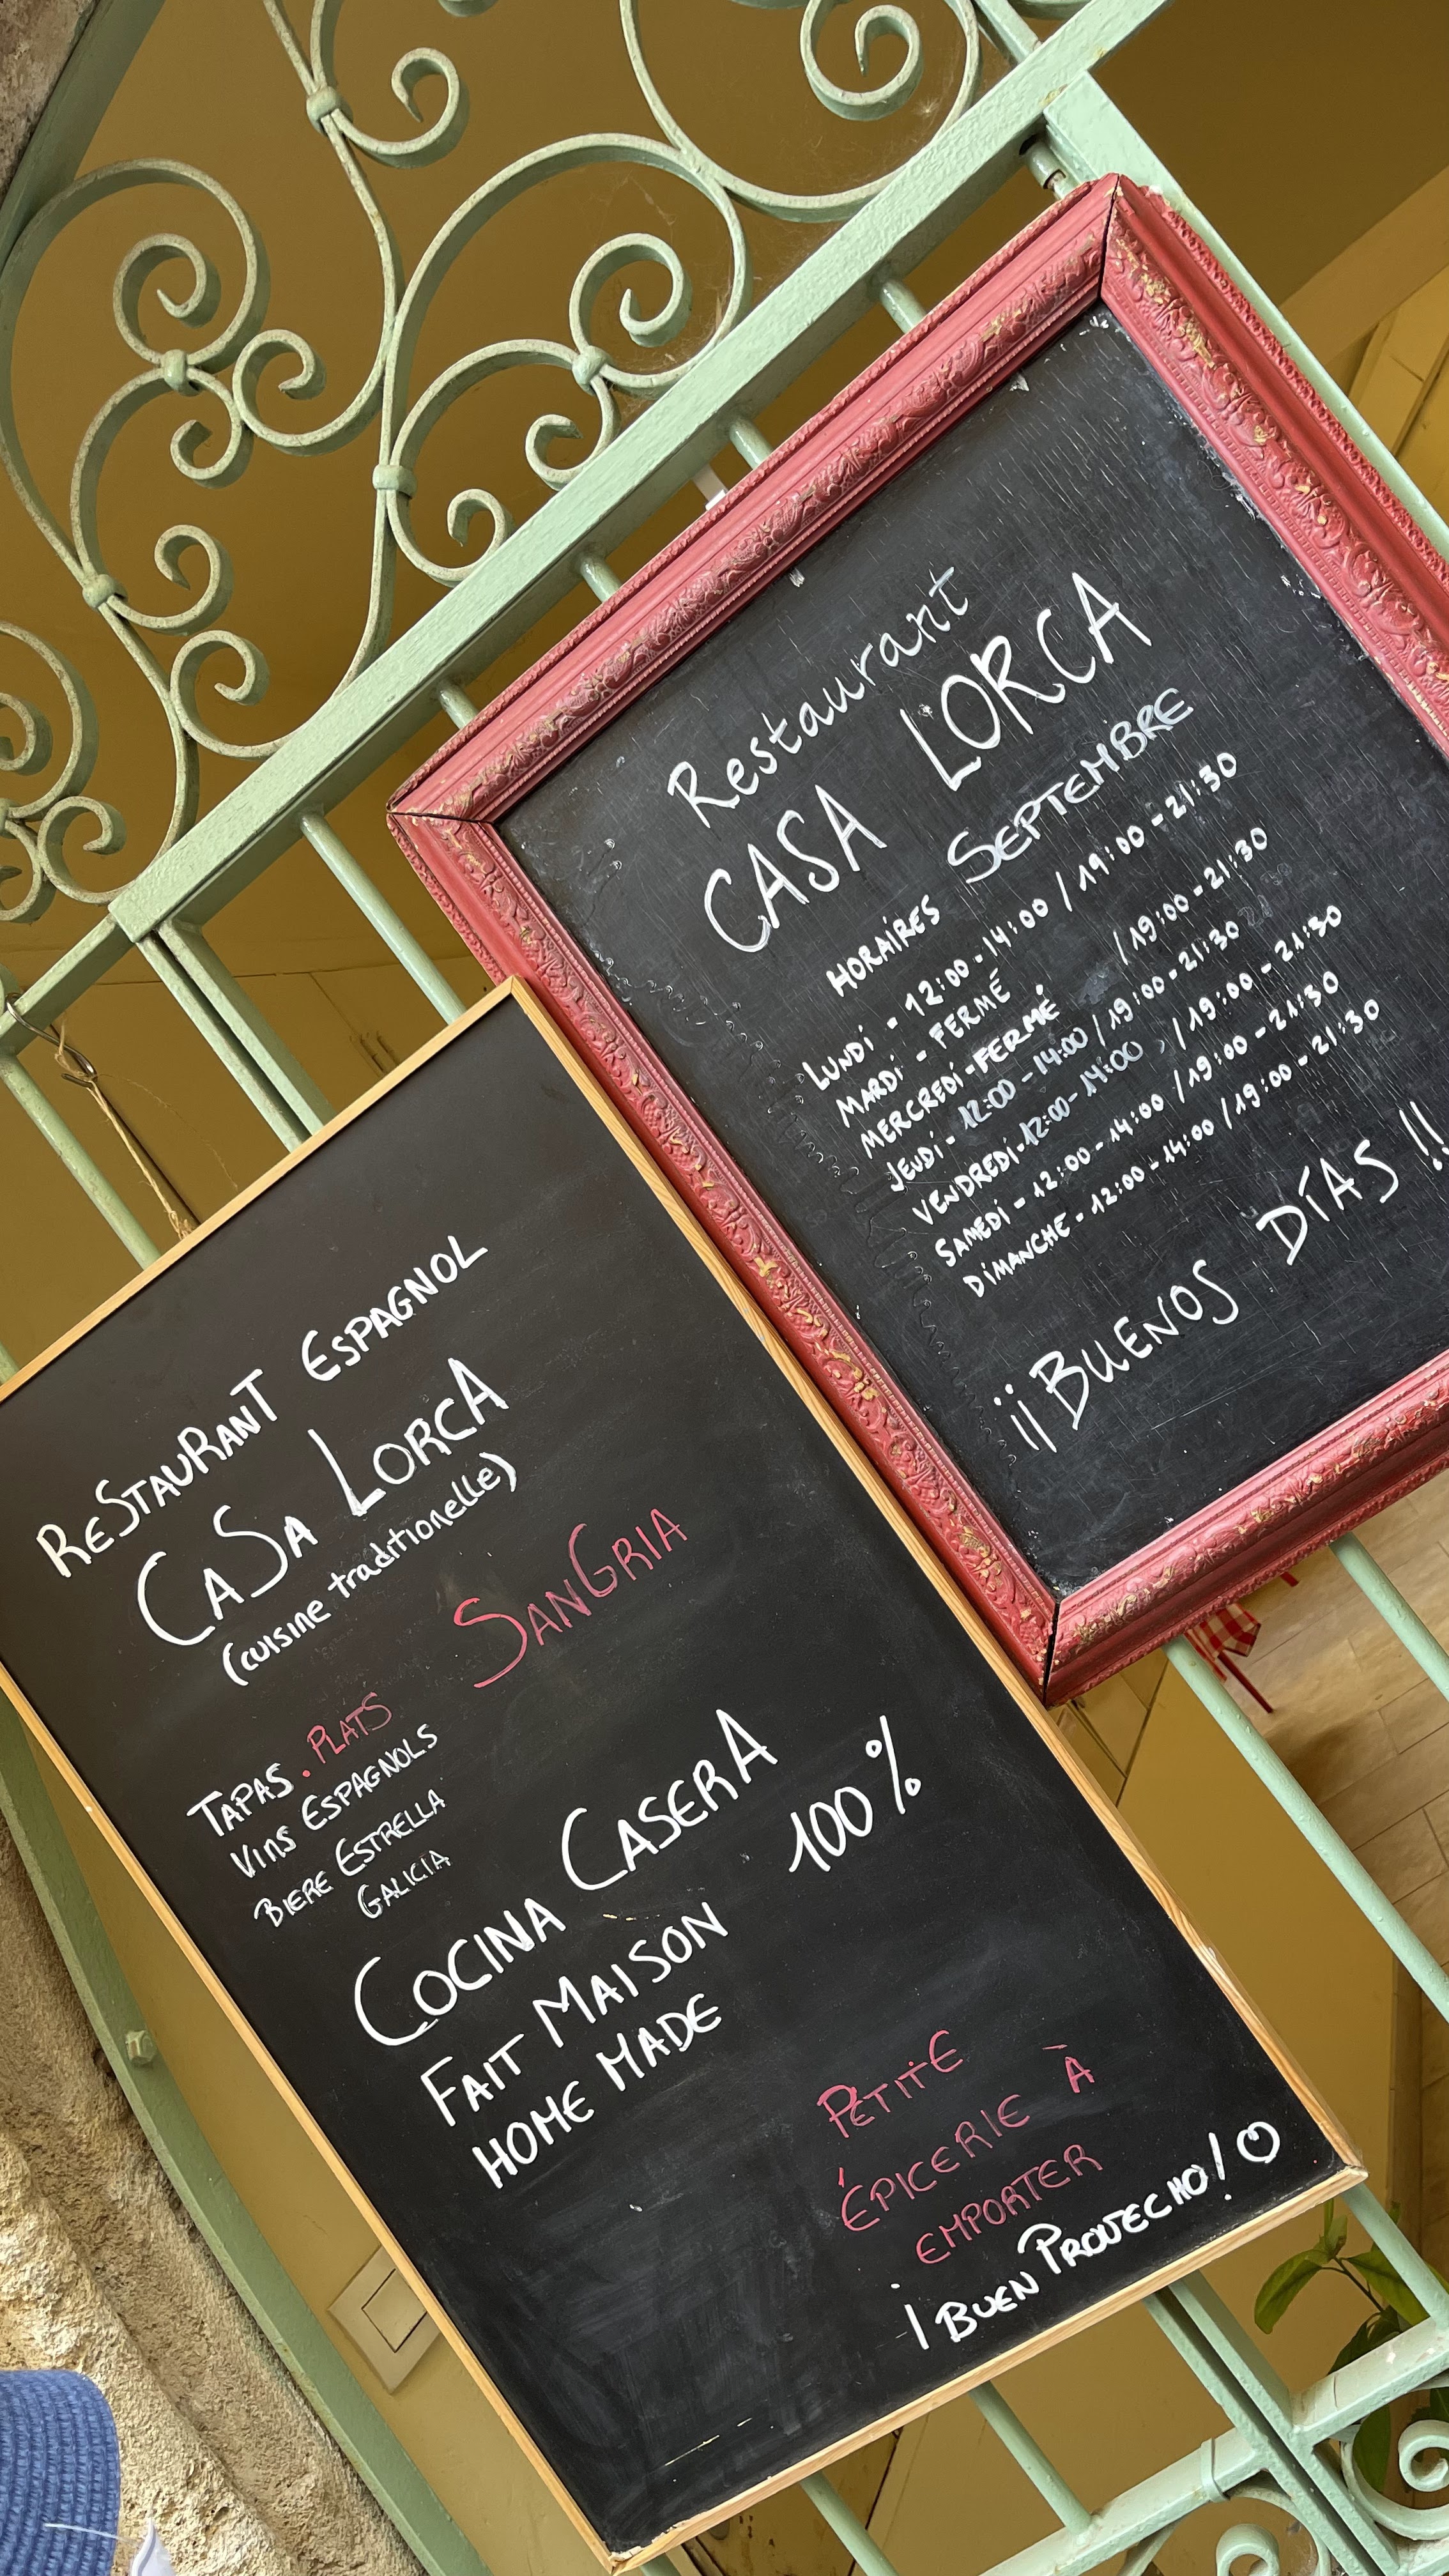 Restaurant
CASA LORCA
HORAIRES SEPTEMBRE
LUNDI - 12:00 - 14:00 / 19:00 - 21:30
MARDI - FERMÉ
MERCREDI - FERMÉ / 19:00 - 21:30
JEUDI - 12:00 - 14:00 / 19:00 - 21:30
VENDREDI - 12:00 - 14:00 / 19:00 - 21:30
SAMEDI - 12:00 - 14:00 / 19:00 - 21:30
DIMANCHE - 12:00 - 14:00 / 19:00 - 21:30
¡¡BUENOS DÍAS!!
ReSTAURANT ESPAGNOL
CASA LORCA
(cuisine traditionelle)
SANGRIA
TAPAS . PLATS
VINS ESPAGNOLS
BIERE ESTRELLA
GALICIA
COCINA CASERA
FAIT MAISON 100%
HOME MADE
PETITE
ÉPICERIE À
EMPORTER
¡BUEN PROVECHO!